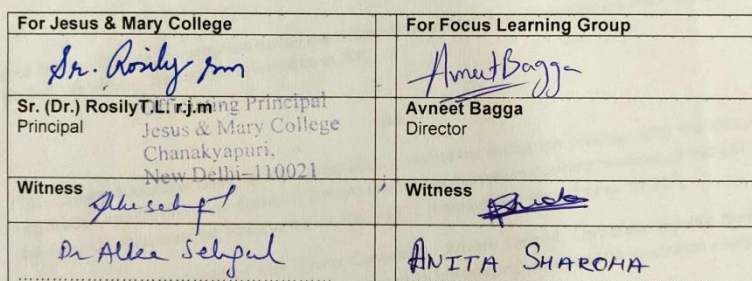 For Jesus & Mary College
For Focus Learning Group
Sr. Rosily rjm
Avneet Bagga
Sr. (Dr.) Rosily T.L. r.j.m
Principal
Officiating Principal
Jesus & Mary College
Chanakyapuri,
New Delhi-110021
Avneet Bagga
Director
Witness
Witness
Dr Alka Sehgal
ANITA SHAROHA